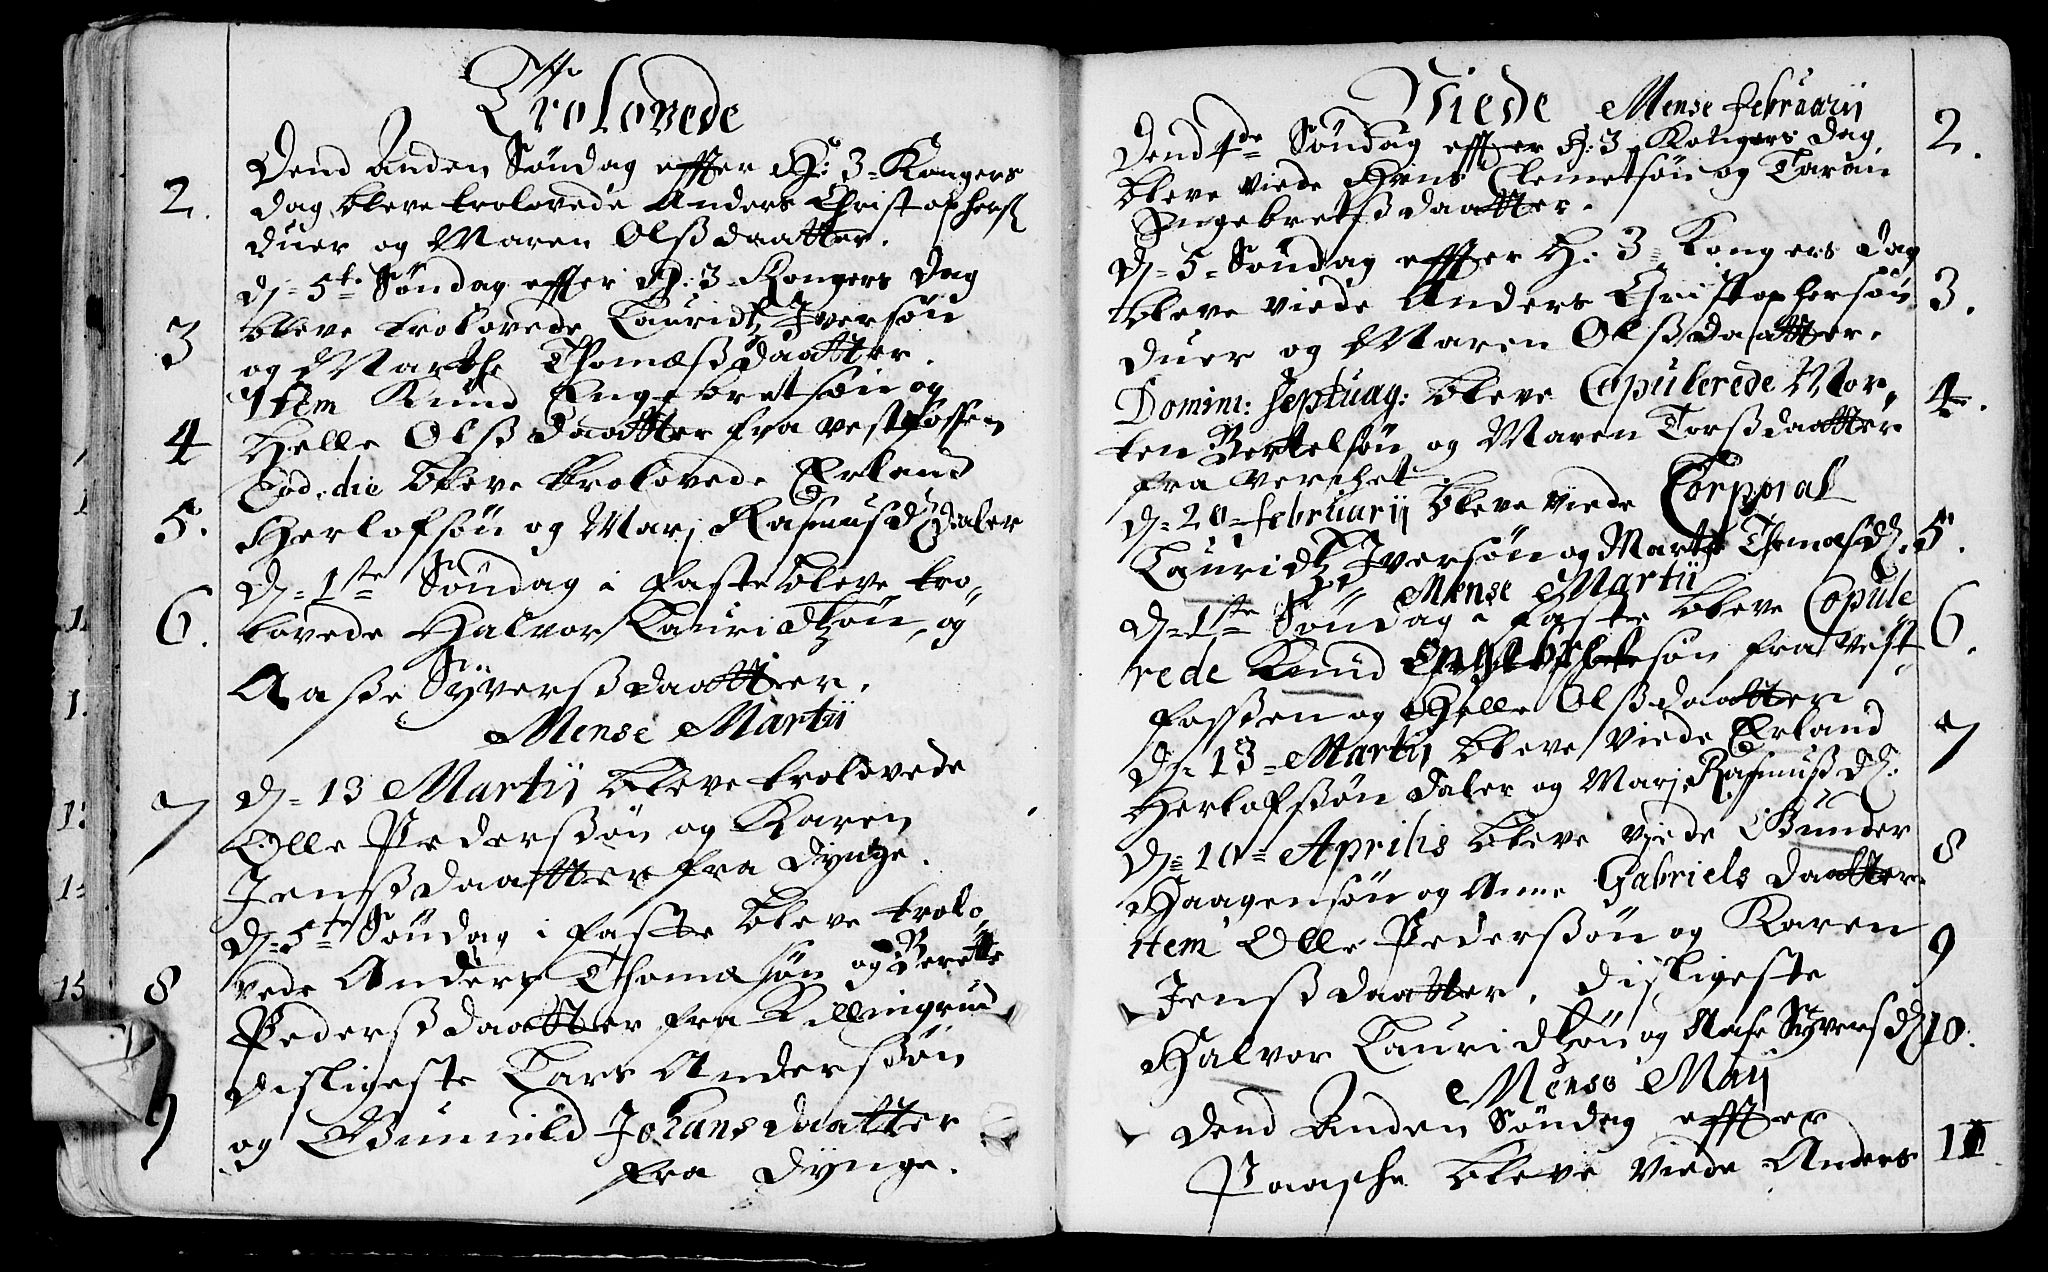 Trolovede
Dend Anden Søndag effter H: 3 = Kongers
2. dag bleve trolovede Anders Christophers
Duer og Maren Olsß daatter.
D = 5te Søndag effter H: 3 Kongers Dag
3 bleve trolovede Lauridtz Iversøn
og Marthe Thomæß daatter.
Item Knud Engebretsøn og
4 Helle Olsß daatter fra Vestfossen
Eod: die bleve trolovede Erland
5. Herlofsøn og Marj Rasmusd: Daler
D = 1ste Søndag i faste bleve tro,,
6. lovede Halvor Lauridtzøn, og
Aaße Syversß daatter.
Mense Martij
D = 13 Martij bleve trolovede
7 Olle Pederßøn og Karen
Jensß daatter fra Dynge.
D = 5te Søndag i faste bleve trolo,,
8 vede Anders Thomasøn og Berette
Pedersß daatter fra Killingrud
disligeste Lars Andersßøn
9 og Gunnild Johans daatter
fra Dynge.
Viede Mense februarij
Dend 4de Søndag effter H: 3 Kongers Dag 2.
bleve viede Hans Clemetsøn og Taran
Ingebretsß daatter.
D = 5 = Søndag effter H: 3 = Kongers Dag
bleve viede Anders Christophersøn 3.
Duer og Maren Olsß daatter.
Domini: septuag: bleve Copulerede Mor,, 4.
ten Bertelsøn og Maren Torsß daatter
fra Verchet.
D = 20 = februarij bleve viede Corporal
Lauridtz Iversøn og Marthe Thomasd: 5.
Mense Martij
D = 1ste Søndag i faste bleve Copule 6.
rede Knud Engebretsøn fra Vest,,
fossen og Helle Olsß daatter
D = 13 = Martij bleve viede Erland 7
Herlofsßøn Daler og Marj Rasmusß D:
D = 10 = Aprilis bleve viede Gunder 8
Haagensøn og Anne Gabriels daatter.
item Olle Pedersßøn og Karen 9
Jensß daatter, disligeste
Halvor Lauridtzøn og Aase Syversd: 10.
Mense Maij
Dend Anden Søndag effter
Paasche bleve viede Anders 11